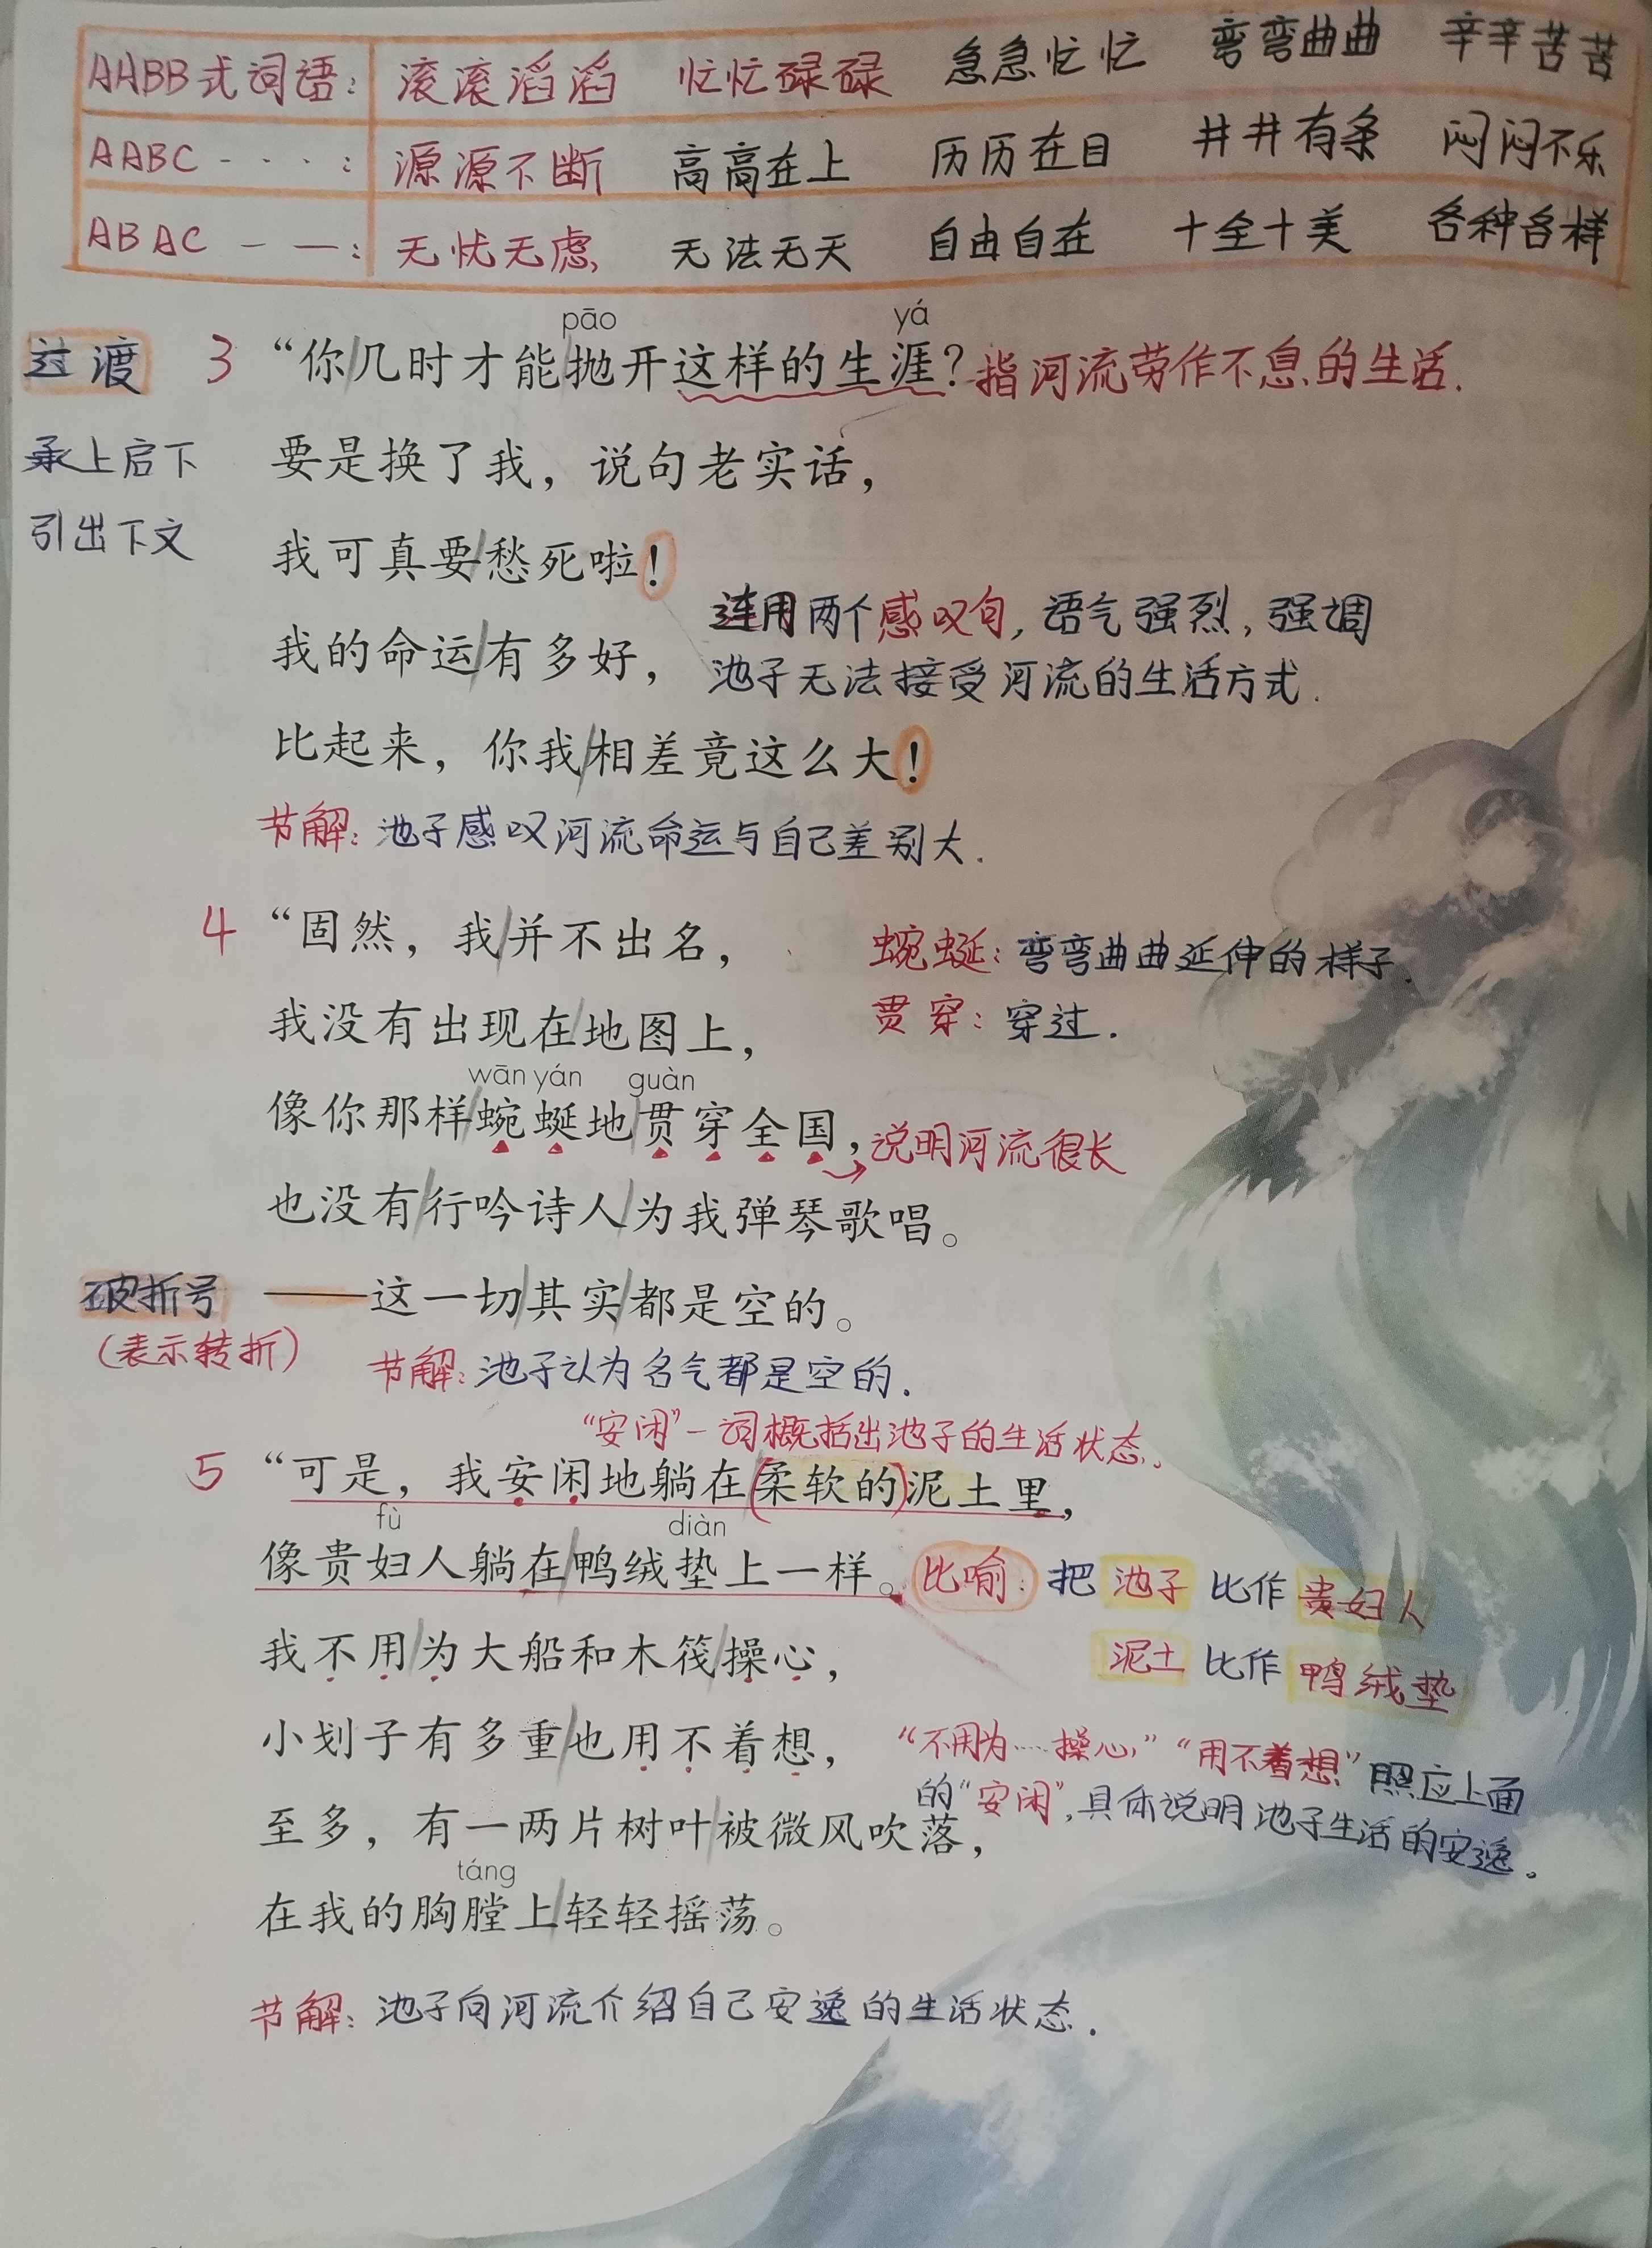 AABB式词语： 滚滚滔滔 忙忙碌碌 急急忙忙 弯弯曲曲 辛辛苦苦
AABC - · · ·： 源源不断 高高在上 历历在目 井井有条 闷闷不乐
ABAC — —： 无忧无虑 无法无天 自由自在 十全十美 各种各样
pāo yá
过渡 3 “你/几时才能/抛开这样的生涯？指河流劳作不息的生活.
承上启下 要是换了我，说句老实话，
引出下文 我可真要/愁死啦！
连用两个感叹句，语气强烈，强调
我的命运/有多好，
池子无法接受河流的生活方式.
比起来，你我/相差竟这么大！
节解：池子感叹河流命运与自己差别大.
4 “固然，我/并不出名，
蜿蜒：弯弯曲曲延伸的样子.
我没有出现在/地图上，
贯穿：穿过.
wān yán guàn
像你那样/蜿蜒地/贯穿全国，→说明河流很长
也没有/行吟诗人/为我弹琴歌唱。
破折号 ——这一切/其实/都是空的。
（表示转折） 节解：池子认为名气都是空的.
“安闲”一词概括出池子的生活状态.
5 “可是，我安闲地躺在(柔软的)泥土里，
fù diàn
像贵妇人躺在/鸭绒垫上一样。 比喻：把 池子 比作 贵妇人
泥土 比作 鸭绒垫
我不用/为大船和木筏/操心，
小划子有多重/也用不着想，
“不用为……操心，”“用不着想”照应上面
的“安闲”，具体说明池子生活的安逸。
至多，有一两片树叶/被微风吹落，
táng
在我的胸膛上/轻轻摇荡。
节解：池子向河流介绍自己安逸的生活状态.